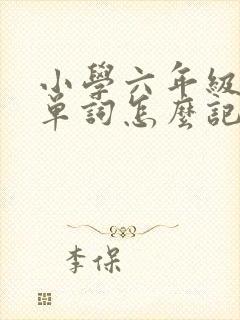 小學六年級
單詞怎麼記
李保